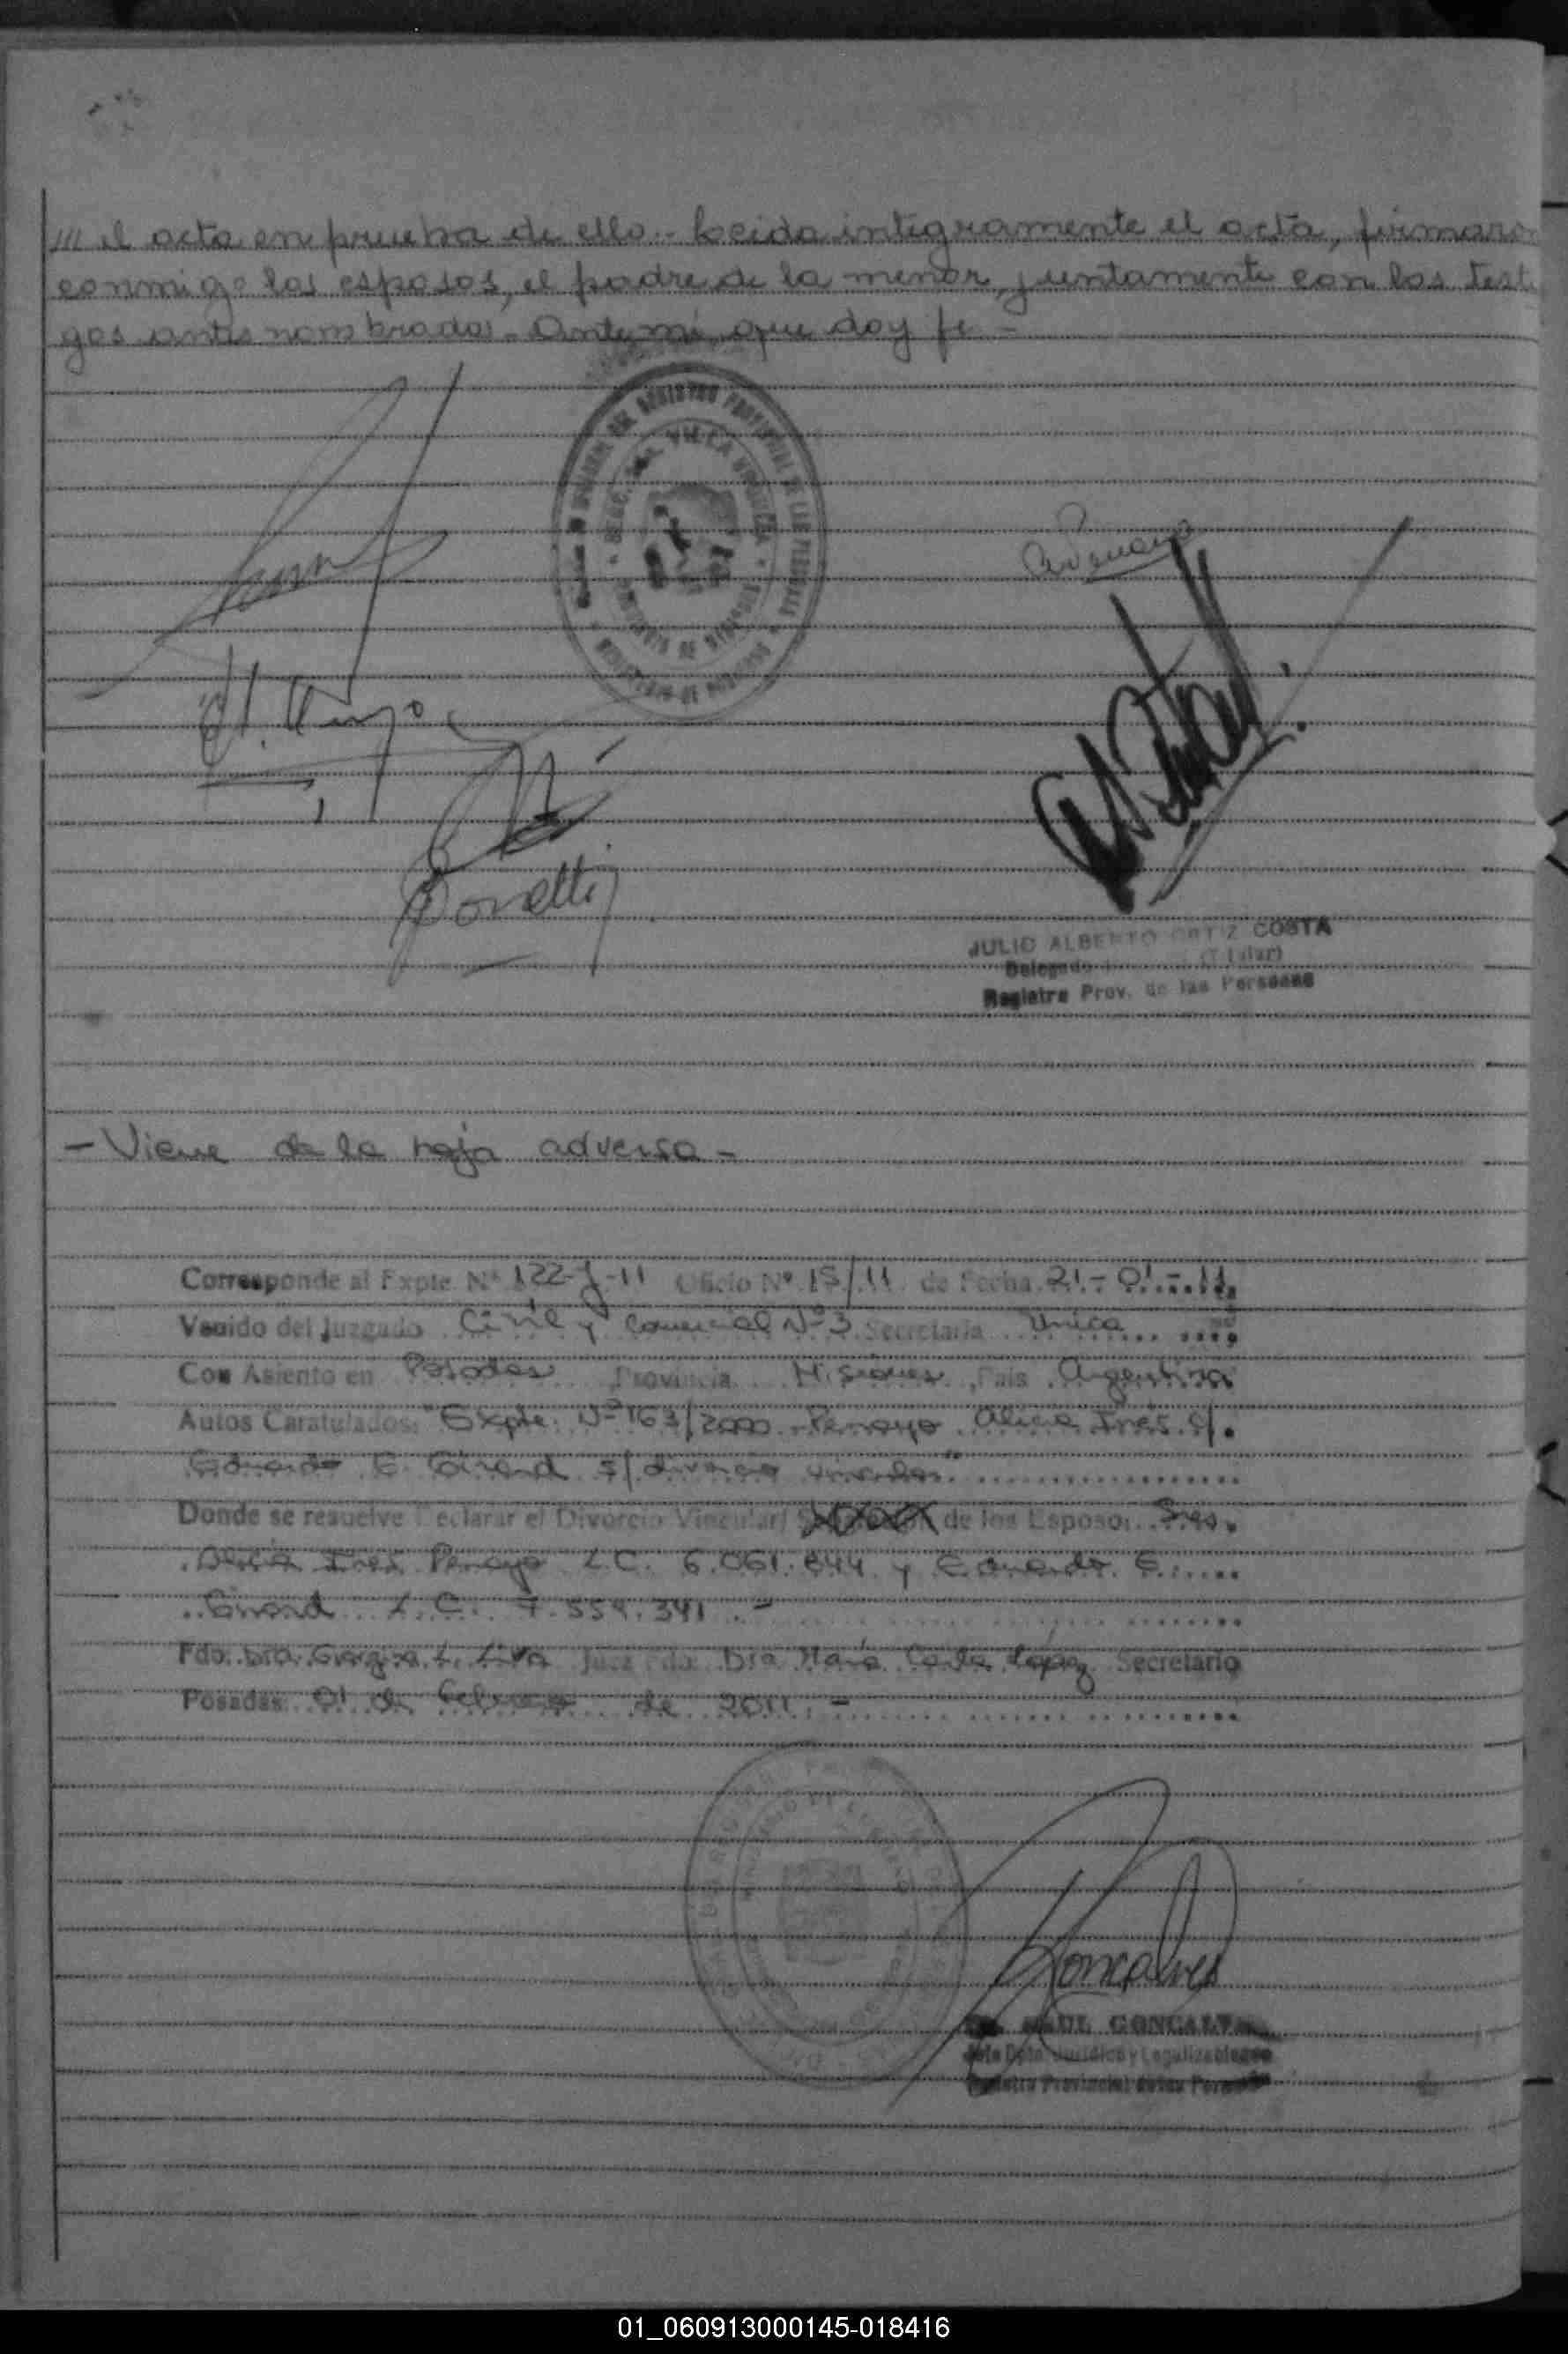 /// el acta en prueba de ello.- Leida integramente el acta, firmaron
conmigo los esposos, el padre de la menor, juntamente con los testi
gos antes nombrados.- Ante mi, que doy fe.-
Bonetti
JULIO ALBERTO ORTIZ COSTA
Delegado (Titular)
Registro Prov. de las Personas
- Viene de la hoja adversa -
Corresponde al Expte. Nº 122-J-11 Oficio Nº 15/11 de Fecha 21-01-11.
Venido del Juzgado Civil y Comercial Nº 3 Secretaria Unica
Con Asiento en Posadas Provincia Misiones, País Argentina
Autos Caratulados: "Expte. Nº 163/2000 Penayo Alicia Inés c/.
Eduardo E. Girard s/ divorcio vincular"
Donde se resuelve Declarar el Divorcio Vincular/ de los Esposos Sres.
Alicia Inés Penayo L.C. 6.061.844 y Eduardo E.
Girard L.E. 7.559.341.-
Fdo. Dra. Juez Fdo. Dra María Carla López Secretario
Posadas 01 de Febrero de 2011.-
Goncalves
RAUL GONCALVES
Jefe Dpto. Jurídico y Legalizaciones
Registro Provincial de las Personas
01_060913000145-018416